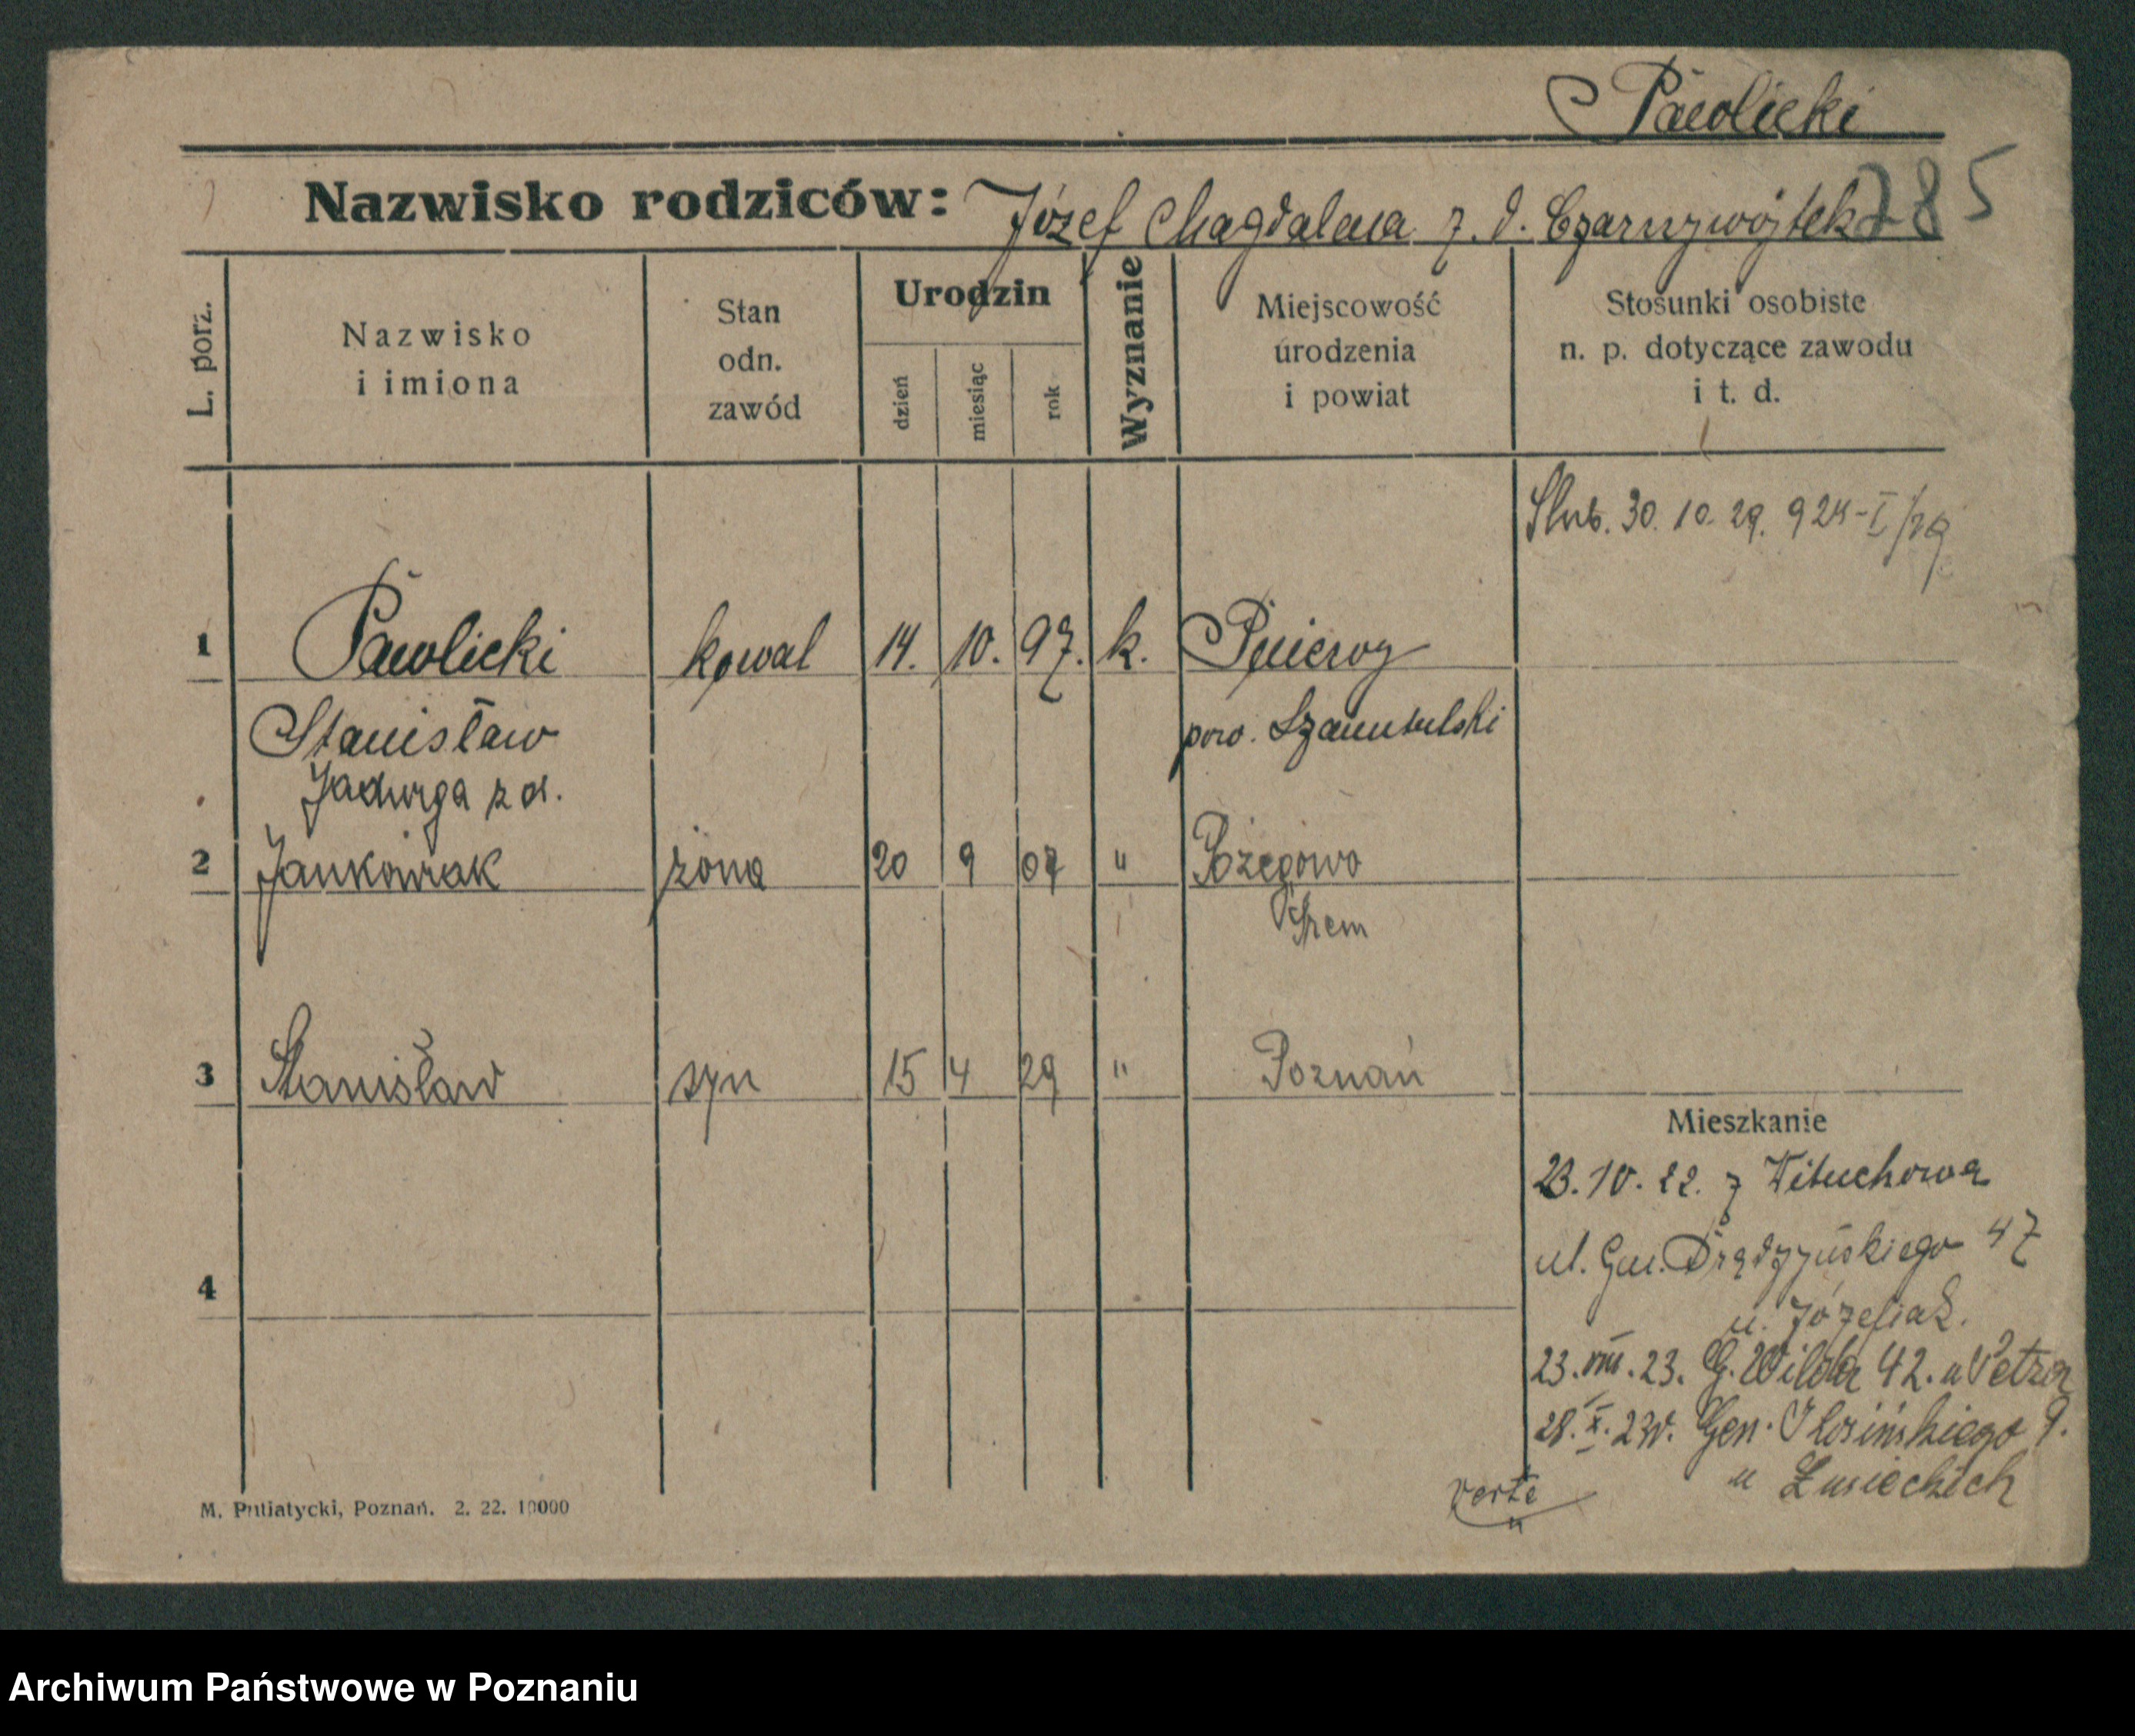 Pawlicki
Nazwisko rodziców: Józef Magdalena z. d. Czarnywojtek 285
L. porz.
Nazwisko i imiona
Stan odn. zawód
Urodzin
dzień
miesiąc
rok
Wyznanie
Miejscowość urodzenia i powiat
Stosunki osobiste n. p. dotyczące zawodu i t. d.
Ślub. 30. 10. 29.
1 Pawlicki kowal 14. 10. 97. k. Pnierwy
Stanisław pow. Szamotulski
Jadwiga z d.
2 Jankowiak żona 20 9 07 " Pożegowo
Śrem
3 Stanisław syn 15 4 29 " Poznań
Mieszkanie
23. 10. 22. z Wituchowa
ul. Gen. Prądzyńskiego 47
u. Józefiak.
23. VIII. 23. G. Wilda 42. u
28. X. 23r. Gen. 9.
u
4
verte
M. Putiatycki, Poznań. 2. 22. 10000
Archiwum Państwowe w Poznaniu